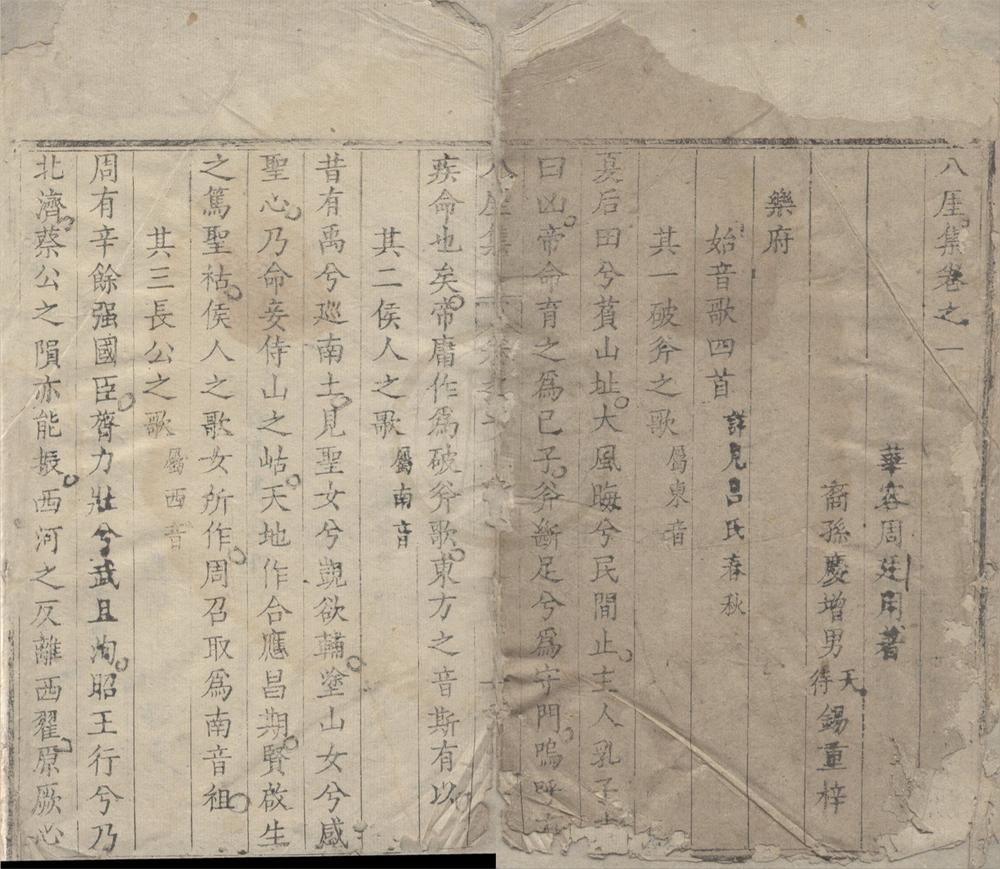 八厓集卷之一
華容周廷用著
裔孫慶增男天待錫重梓
樂府
始音歌四首詳見呂氏春秋
其一破斧之歌屬東音
夏后田兮萯山址大風晦兮民間止主人乳子
曰凶帝命育之爲已子斧斷足兮爲守門嗚呼
八厓集
疾命也矣帝庸作爲破斧歌東方之音斯有以
其二侯人之歌屬南音
昔有禹兮廵南土見聖女兮覬欲輔塗山女兮感
聖心乃命妾侍山之岵天地作合應昌期賢啟生
之篤聖祜侯人之歌女所作周召取爲南音祖
其三長公之歌屬西音
周有辛餘强國臣膂力壯兮武且洵昭王行兮乃
北濟蔡公之隕亦能振西河之反離西翟原厥心